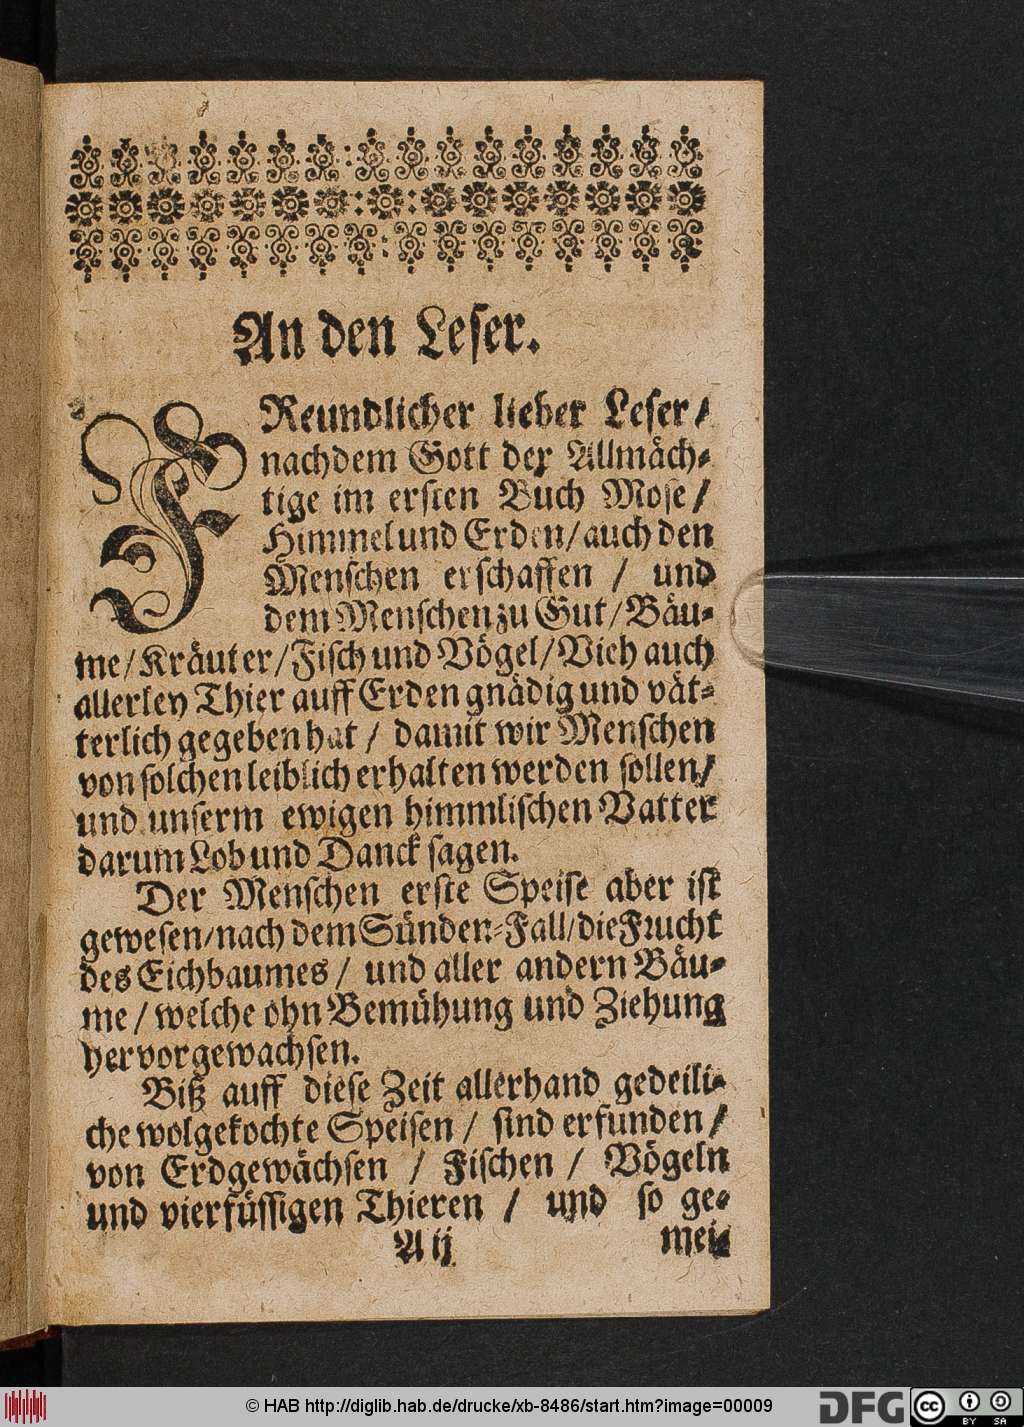 An den Leser.
FReundlicher lieber Leser/
nachdem Gott der Allmäch-
tige im ersten Buch Mose/
Himmel und Erden/ auch den
Menschen erschaffen / und
dem Menschen zu Gut/ Bäu-
me/ Kräuter/ Fisch und Vögel/ Vieh auch
allerley Thier auff Erden gnädig und vät-
terlich gegeben hat / damit wir Menschen
von solchen leiblich erhalten werden sollen/
und unserm ewigen himmlischen Vatter
darum Lob und Danck sagen.
Der Menschen erste Speise aber ist
gewesen/ nach dem Sünden-Fall/ die Frucht
des Eichbaumes / und aller andern Bäu-
me / welche ohn Bemühung und Ziehung
hervorgewachsen.
Biß auff diese Zeit allerhand gedeili-
che wolgekochte Speisen / sind erfunden/
von Erdgewächsen / Fischen / Vögeln
und vierfüssigen Thieren / und so ge-
A ij mei-
© HAB http://diglib.hab.de/drucke/xb-8486/start.htm?image=00009
DFG cc BY SA